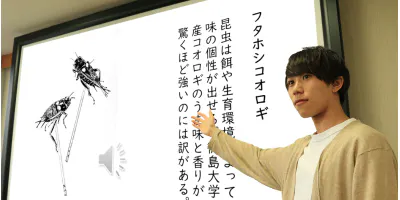 フタホシコオロギ
昆虫は餌や生育環境
よって
味の個性が出せる
島大学
産コオロギのう
味と香りが
驚くほど強いのには訳がある。